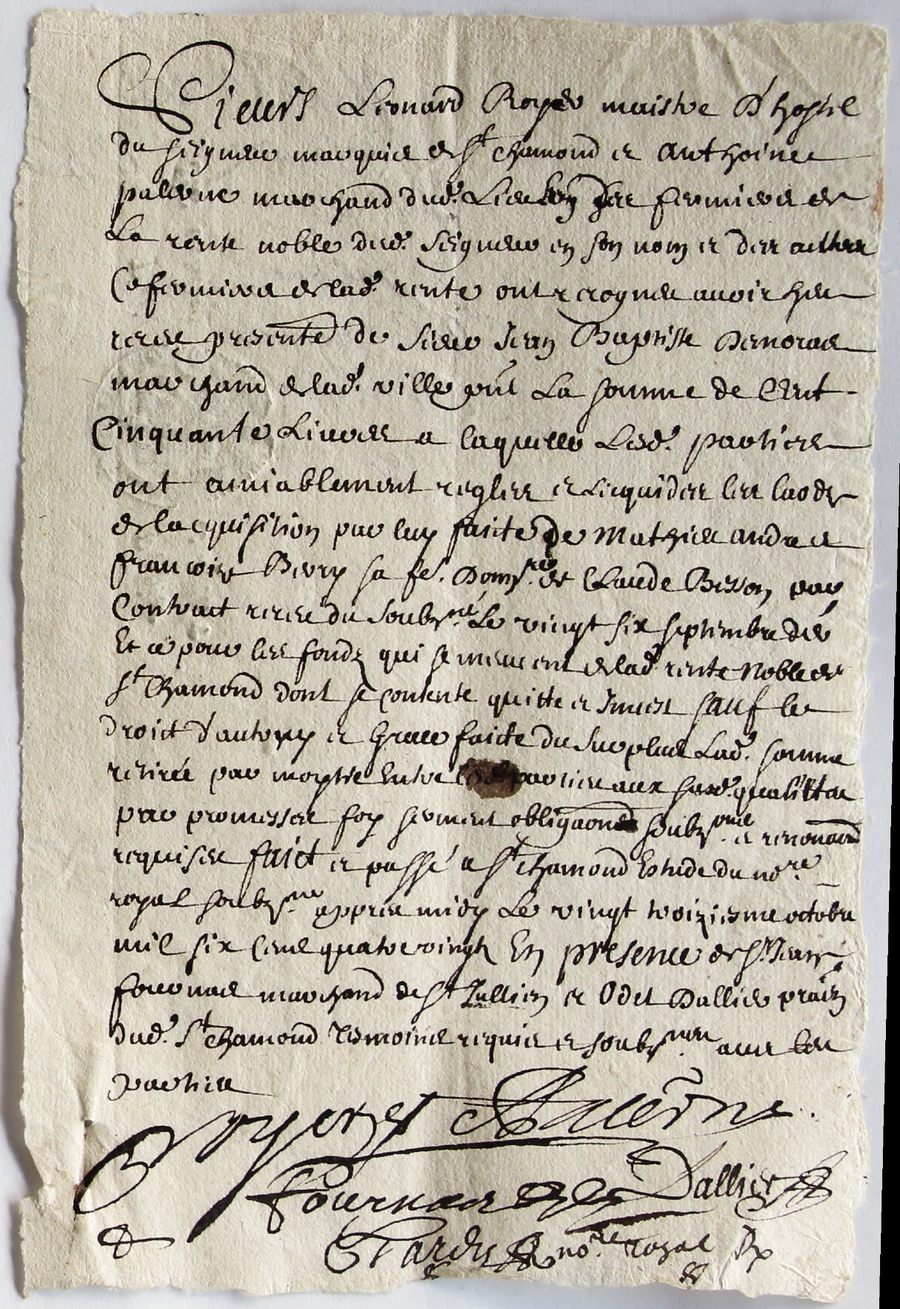 Sieurs Leonard Royer maistre d'hostel
du seigneur marquis de St Chamond et Anthoine
palerne marchand dud. Lieu fermiers de
La rente noble dud. Seigneur en son nom et des aultres
Cofermiers de lad. rente ont recogneu avoir heu
receu presentemt de sieur Jean Baptiste
marchand de lad. ville la somme de Cent
Cinquante Livres a laquelle Lesd. parties
ont amiablement reglees et liquidees les laods
de lacquisition par luy faicte de Mathieu andre et
francoise sa fe. et Claude Besson par
Contract receu du soubsné Le vingt six septembre der
Et ce pour les fondz qui se meuvent de lad. rente Noble de
St Chamond dont se contente quicte et sauf le
droict d'autruy et Grace faicte du surplus Lad. somme
retirée par moytie Entre parties aux susd. quallittes
par promesses foy serment obligaons soubzons et renonceaons
requises faict et passé a St Chamond Estude du nore
royal soubzne apprès midy Le vingt troiziesme octobre
mil six Cens quatre vingtz En presence de Sr Jean
fournas marchand de St Jullien et Odet Dallier
dud. St Chamond Tesmoins requis et soubznes avec les
parties
Royer Palerne
Fournas Dallier
Tardy nore royal